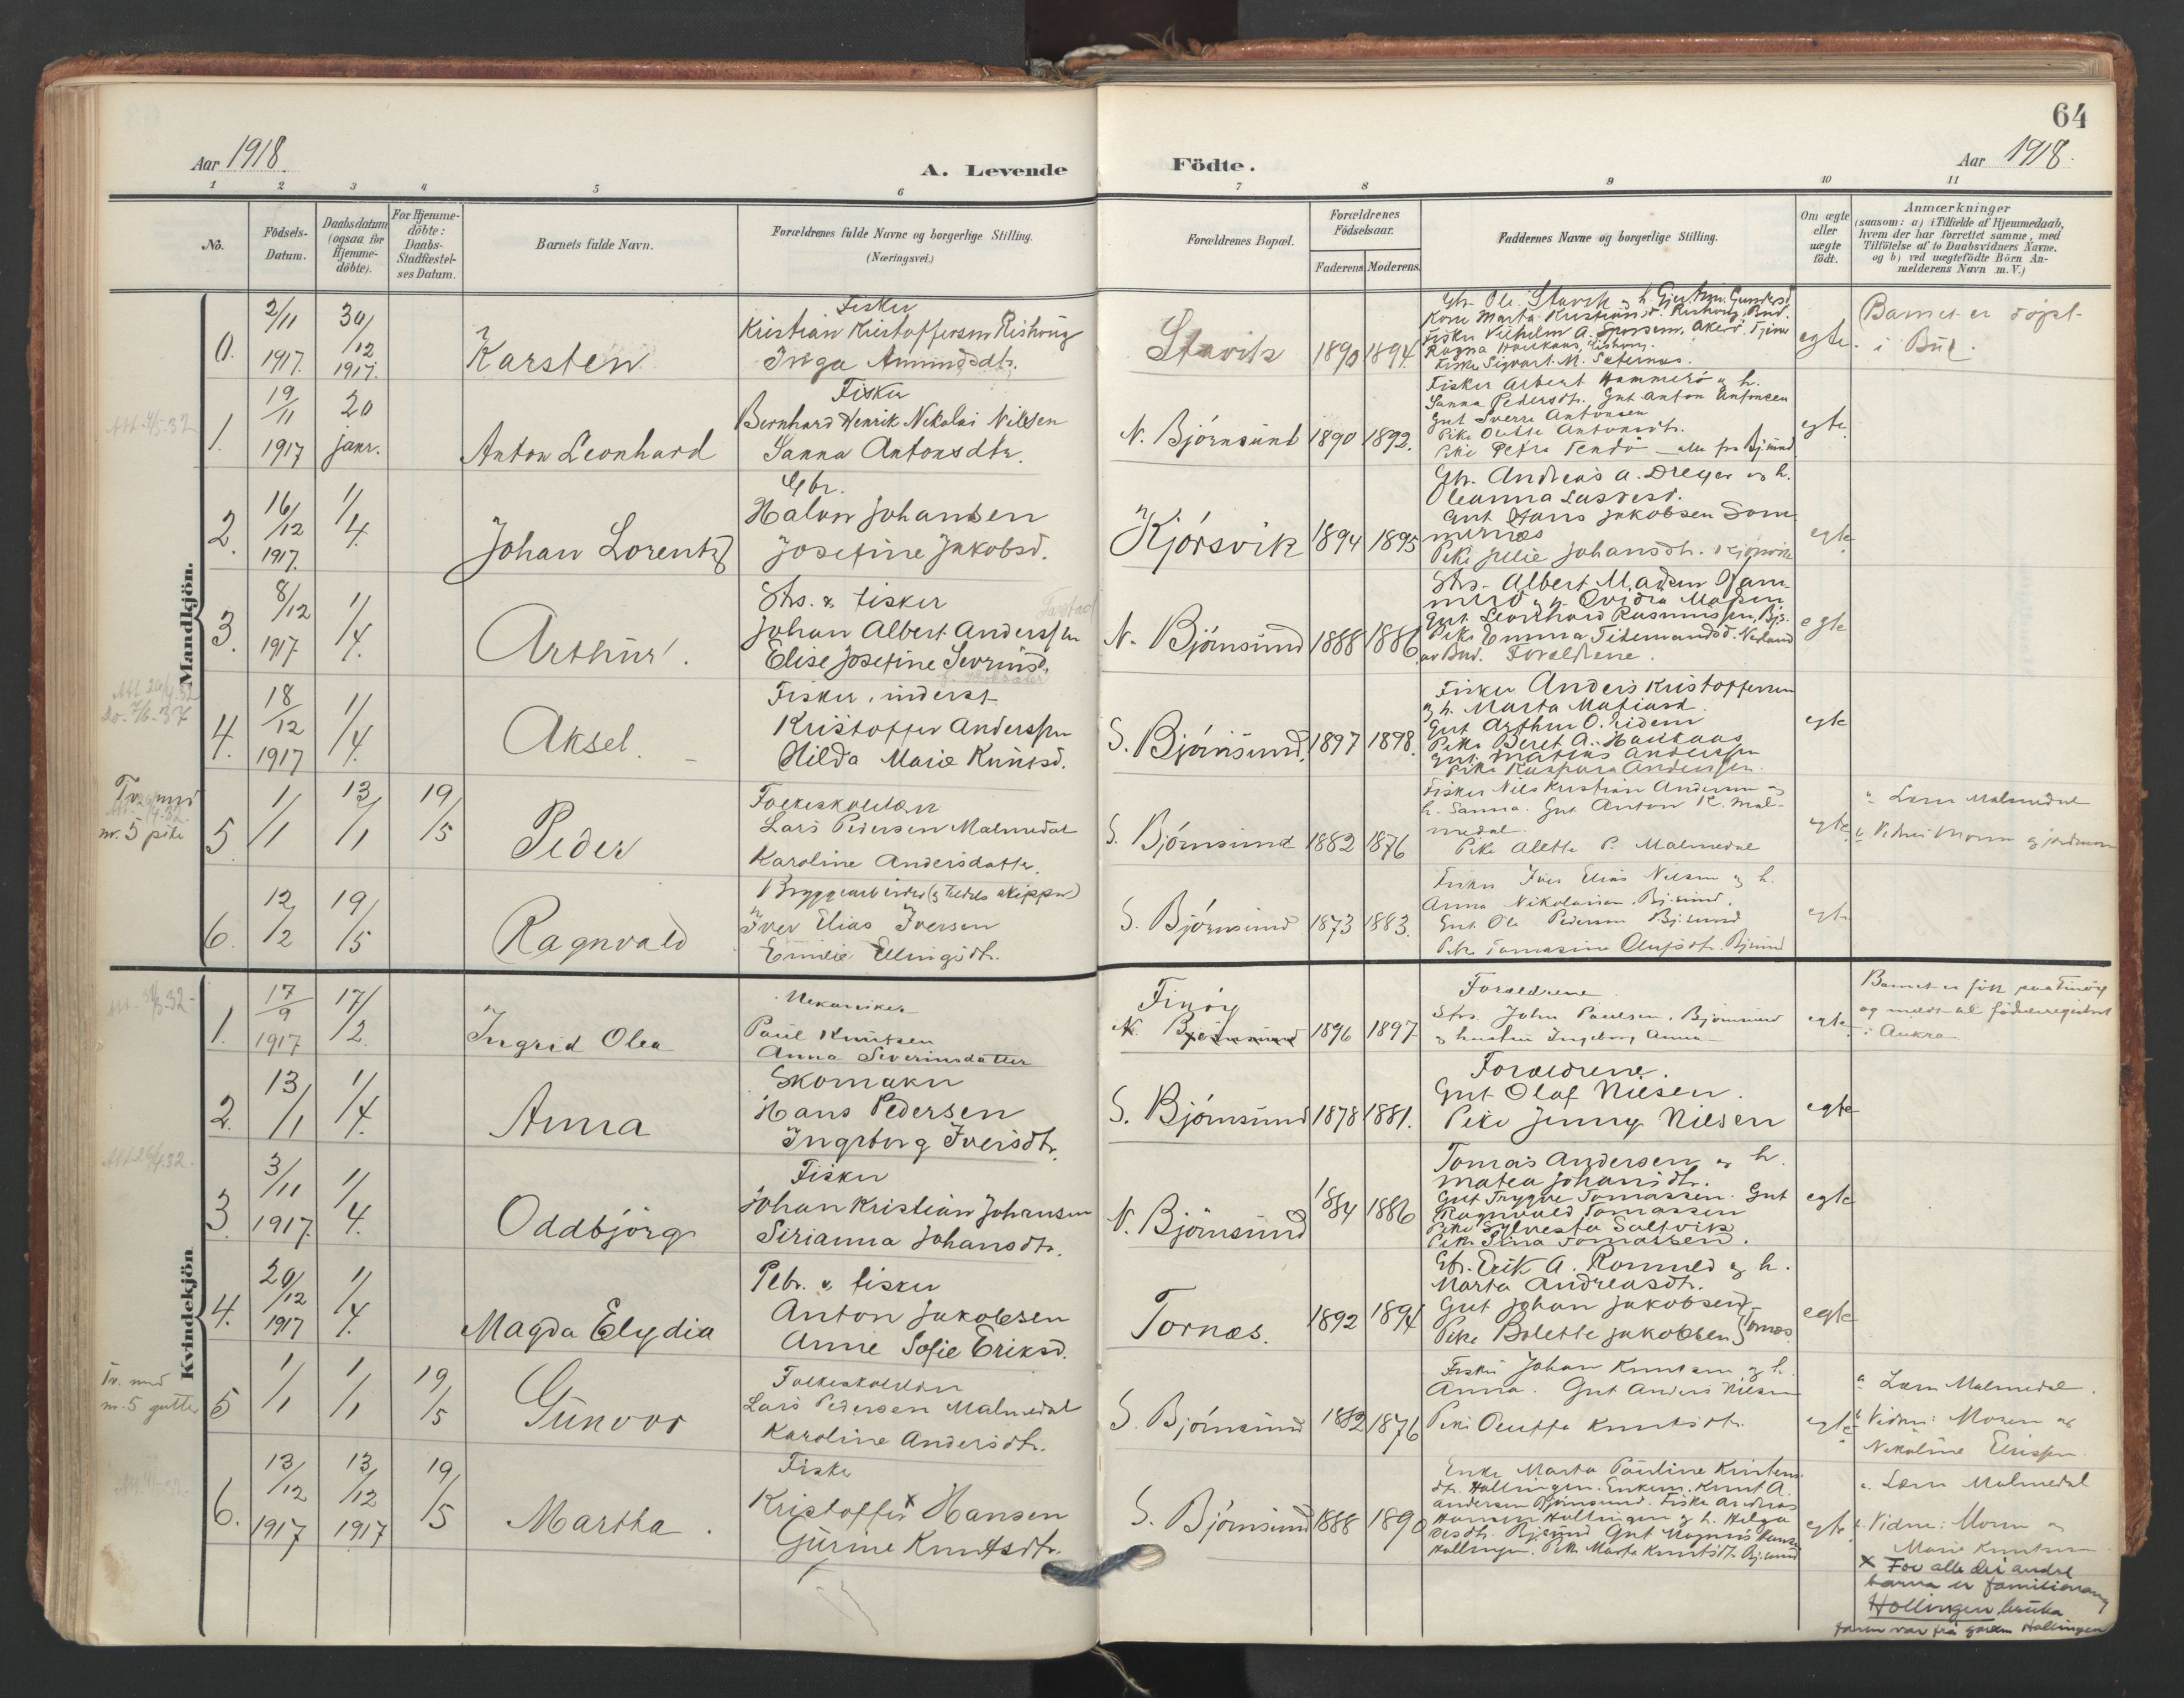 64
Aar 1918.
A. Levende
Födte.
Aar 1918.
1 2 3 4 5 6 7 8 9 10 11
No.
Födsels-
Datum.
Daabsdatum
(ogsaa for
Hjemme-
döbte).
For Hjemme-
döbte:
Daabs-
Stadfæstel-
ses Datum.
Barnets fulde Navn.
Forældrenes fulde Navne og borgerlige Stilling.
(Næringsvei.)
Forældrenes Bopæl.
Forældrenes
Födselsaar.
Faderens. Moderens.
Faddernes Navne og borgerlige Stilling.
Om ægte
eller
uægte
födt.
Anmærkninger
(saasom: a) i Tilfælde af Hjemmedaab,
hvem der har forrettet samme, med
Tilföielse af to Daabsvidners Navne,
og b) ved uægtefödte Börn An-
melderens Navn m.V.)
Mandkjön.
0. 2/11 1917. 30/12 1917.
Karsten
Fisker
Kristian Kristoffersen Rishoug
Inga Amundsdtr.
Stavik 1890 1894.
Gbr. Ole Stavik
egte
Barnet er döpt
i Bud.
1. 19/11 1917 20 janr.
Anton Leonhard
Fisker
Bernhard Henrik Nikolai Nilsen
Sanna Antonsdtr.
N. Björnsund 1890 1892.
Fisker Albert Hammerö og h.
Sanna Pedersdtr. Gut Anton Antonsen
Gut Sverre Antonsen
Pike Petra Tendö - alle fra Bj.sund
egte
2. 16/12 1917. 1/4.
Johan Lorentz
Gbr.
Halvor Johansen
Josefine Jakobsd.
Kjörsvik 1894 1895
Gbr. Andreas A. Dreyer og h.
Oleanna Lassesd.
Gut Hans Jakobsen Som
mernæs
Pike Julie Johansdtr. Kjörsvik
egte
3. 8/12 1917 1/4.
Arthur.
Strs. & fisker
Johan Albert Anderssen
Elise Josefine Sevrinsd.
N. Björnsund 1888 1886
Gut Leonhard Rasmussen, Bjs.
Pike Emma Tidemandsd. Nerland
av Bud. Forældrene.
egte
4. 18/12 1917 1/4.
Aksel.
Fisker, inderst
Kristoffer Anderssen
Hilda Marie Knutsd.
S. Björnsund. 1897 1898.
Fisker Anders Kristoffersen
og h. Marta Matiasd.
Pike Beret A. Haukaas
Gut Matias Anderssen
Pike Kaspara Anderssen.
egte
Tv. med
nr. 5 pike
5 1/1 13/1 19/5
Peder
Folkeskolelær
Lars Pedersen Malmedal
Karoline Andersdatter.
S. Björnsund 1882 1876
Fisker Nils Kristian Andersen og
h. Sanna. Gut Anton K. Mal-
medal.
Pike Alette P. Malmedal
egte
a. Lærer Malmedal
6. 12/2 19/5
Ragnvald
Bryggearbeider (og tildels skipper)
Iver Elias Iversen
Emilie Ellingsdtr.
S. Björnsund 1873 1883.
Fisker Iver Elias Nilsen og h.
Anna Nikolaisen. Bj.sund.
Gut Ole Pedersen Bj.sund
Pike Tomasine Olufsdtr. Bj.sund
egte
Kvindekjön
1. 17/9 1917 17/2.
Ingrid Olea
Mekaniker
Paul Knutsen
Anna Severinsdatter
Finöy
N. Björnsund 1896 1897
Forældrene
Strs. John Paulsen, Björnsund
og hustru Ingeborg Anna
egte
Barnet er född paa Finöy
og medt. al födselregistret
i Aukra
2. 13/1 1/4.
Anna
Skomaker
Hans Pedersen
Ingeborg Iversdtr.
S. Björnsund 1878 1881.
Forældrene.
Gut Olaf Nilsen.
Pike Jenny Nilsen
egte
3. 3/11 1917. 1/4.
Oddbjörg
Fisker
Johan Kristian Johansen
Sirianna Johansdtr.
N. Björnsund 1884 1886
Tomas Andersen og h.
Matea Johansdtr.
Gut Trygve Tomassen. Gut
Ragnvald Tomassen
Pike Sylvesta Saltvik
Pike Sina Tomassen.
egte
4. 20/12 1917 1/4.
Magda Elydia
Pebr. & fisker
Anton Jakobsen
Anne Sofie Eriksd.
Tornæs. 1892 1894
Gbr. Erik A. Romuld og h.
Marta Andreasdtr.
Gut Johan Jakobsen
Pike Bolette Jakobsen } Tornæs.
egte
Tv. med
nr. 5 gutter
5 1/1 1/1 19/5
Gunvor
Folkeskolelær
Lars Pedersen Malmedal
Karoline Andersdtr.
S. Björnsund 1882 1876
Fisker Johan Knutsen og h.
Anna. Gut Anders Nilsen
egte
a Lærer Malmedal.
b Vidner: Moren og
6. 13/12 1917 13/12 1917 19/5
Martha.
Fisker
Kristoffer x Hansen
Gurine Knutsdtr.
S. Björnsund 1888 1890
Enke Marta Pauline Kristens
dtr. Hollingen. Enkem. Knut A.
Andersen Björnsund. Fisker Andreas
Hansen Hollingen og h. Helga
Hollingen. Pike Marta Knutsdtr. Bj.sund
egte
a. Lærer Malmedal
b. Vidner: Moren og
Marie Knutsen.
x For alle dei andre
barna er familienamn
Hollingen bruka
faren var frå garden Hollingen